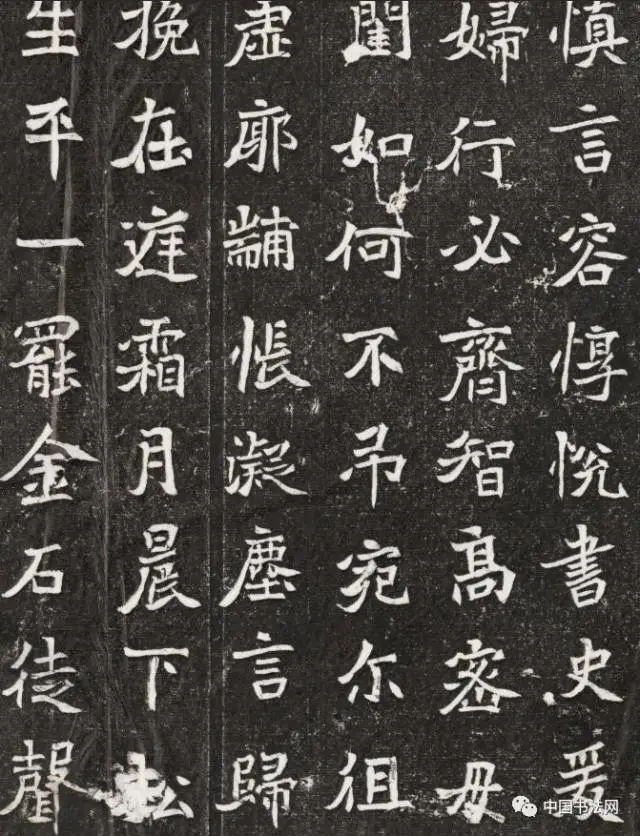 慎言容惇悅書史爰
婦行必齊智髙密毋
閨如何不吊宛尒徂
虛廓黼悵凝塵言歸
挽在庭霜月晨下松
生平一罷金石徒聲
中国书法网